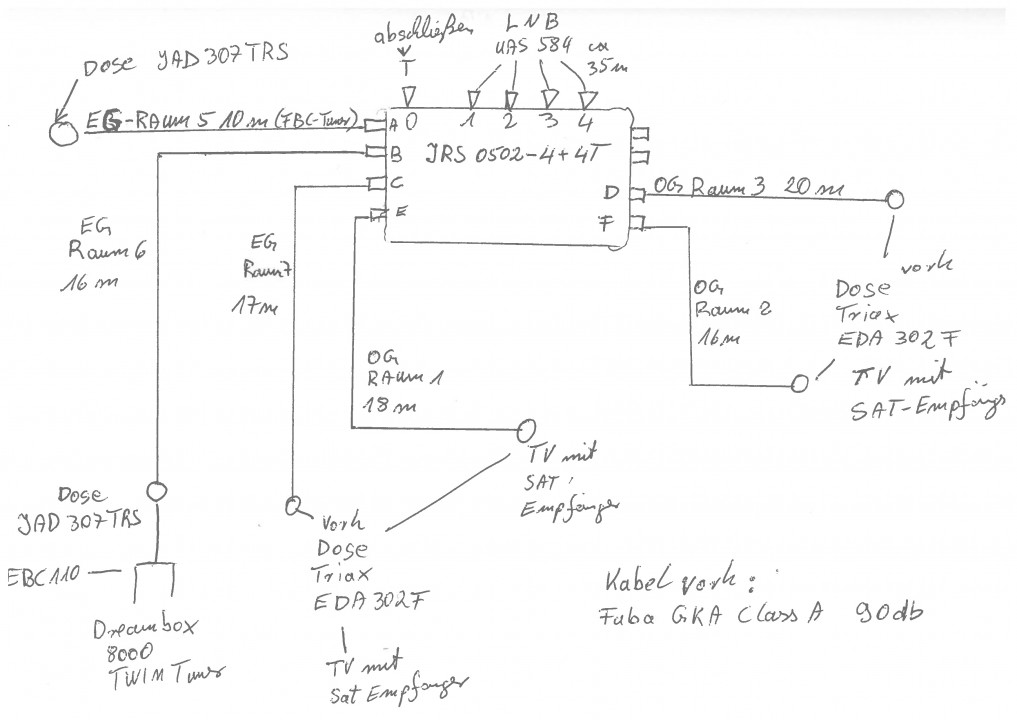 abschließen
LNB
UAS 584 ca
35m
T
Dose JAD 307 TRS
EG-Raum 5 10 m (FBC-Tuner)
A 0 1 2 3 4
B JRS 0502-4+4T
C
E
D
F
OG Raum 3 20 m
EG
Raum 6
16 m
EG
Raum 7
17m
OG
RAum 1
18 m
OG
Raum 2
16m
vorh
Dose
Triax
EDA 302 F
TV mit
SAT-Empfäng
TV mit
SAT
Empfänger
Dose
JAD 307 TRS
EBC 110
Dreambox
8000
TWIN Tuner
vorh
Dose
Triax
EDA 302F
TV mit
Sat Empfänger
Kabel vorh:
Fuba GKA Class A 90db